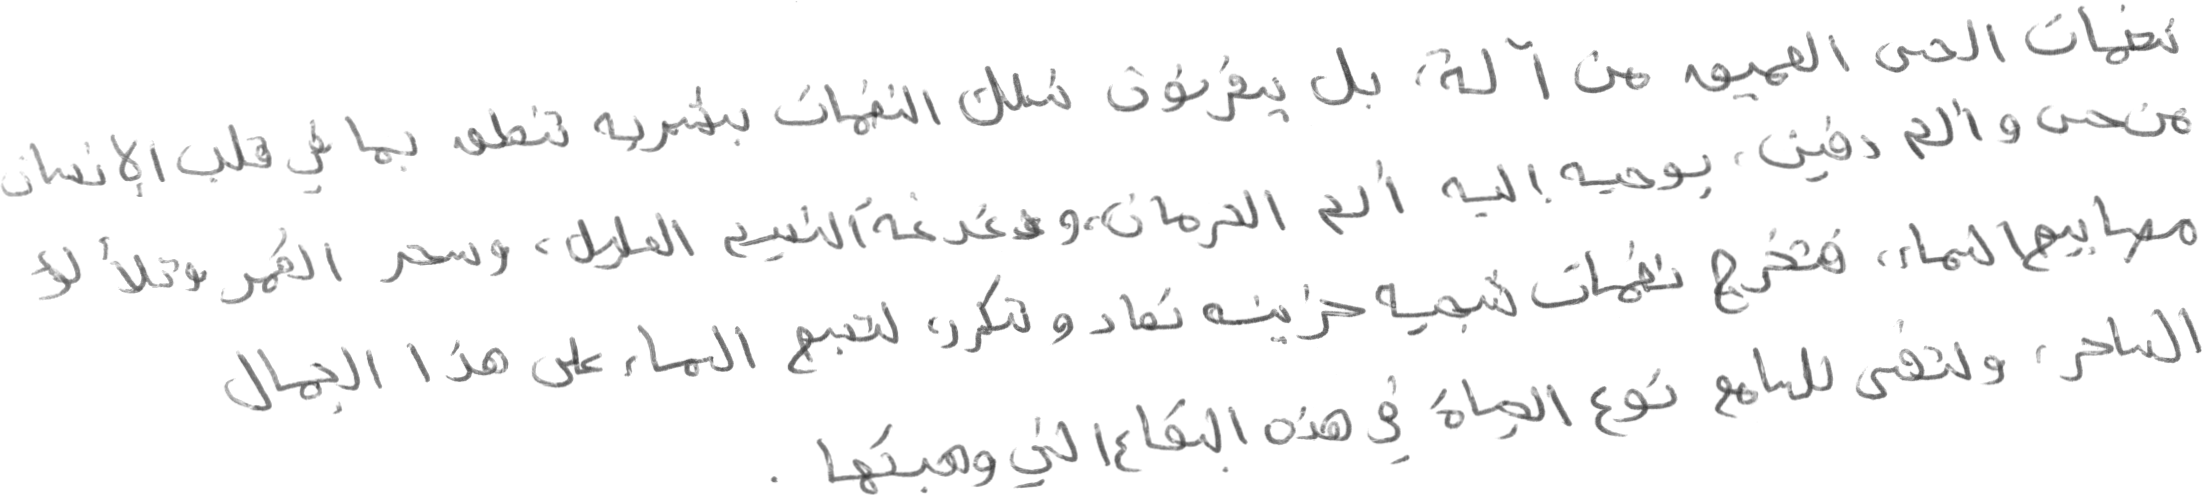 نغمات الحس العميق من آلة، بل يقرنون تلك النغمات ببشريه تنطق بما في قلب الإنسان
من حس وألم دفين، يوحيه إليه ألم الحرمان، ودغدغة النسيم العليل، وسحر القمر وتلألؤ
مصابيح السماء، فتخرج نغمات شجيه حزينه تعاد وتكرر، لتسبح السماء على هذا الجمال
الساحر، ولتفسر للسامع نوع الحياة في هذه البقاع التي وهبتها .